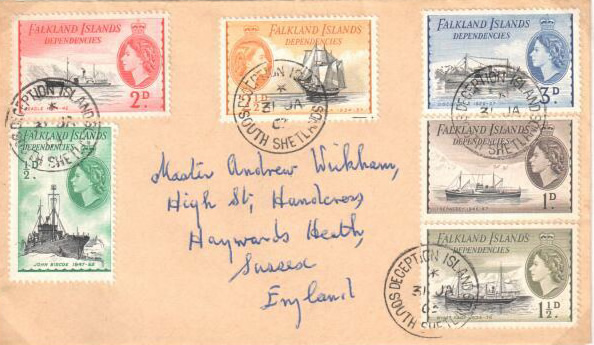 FALKLAND ISLANDS
DEPENDENCIES
2D.
FALKLAND ISLANDS
DEPENDENCIES
2½D.
FALKLAND ISLANDS
DEPENDENCIES
3D.
DECEPTION ISLAND
31 JA
SOUTH SHETLANDS
DECEPTION ISLAND
31 JA
SOUTH SHETLANDS
DECEPTION ISLAND
31 JA
SOUTH SHETLANDS
FALKLAND ISLANDS
DEPENDENCIES
½D.
JOHN BISCOE 1947-52
FALKLAND ISLANDS
DEPENDENCIES
1D.
FALKLAND ISLANDS
DEPENDENCIES
1½D.
DECEPTION ISLAND
31 JA
SOUTH SHETLANDS
Master Andrew Wickham,
High St, Handcross
Haywards Heath,
Sussex
England